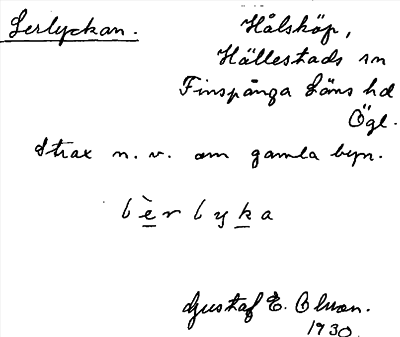 Lerlyckan.
Hålsköp,
Hällestads sn
Finspånga Läns hd
Ögl.
Strax n. v. om gamla byn.
lèrlyka
Gustaf E. Olsson.
1930.